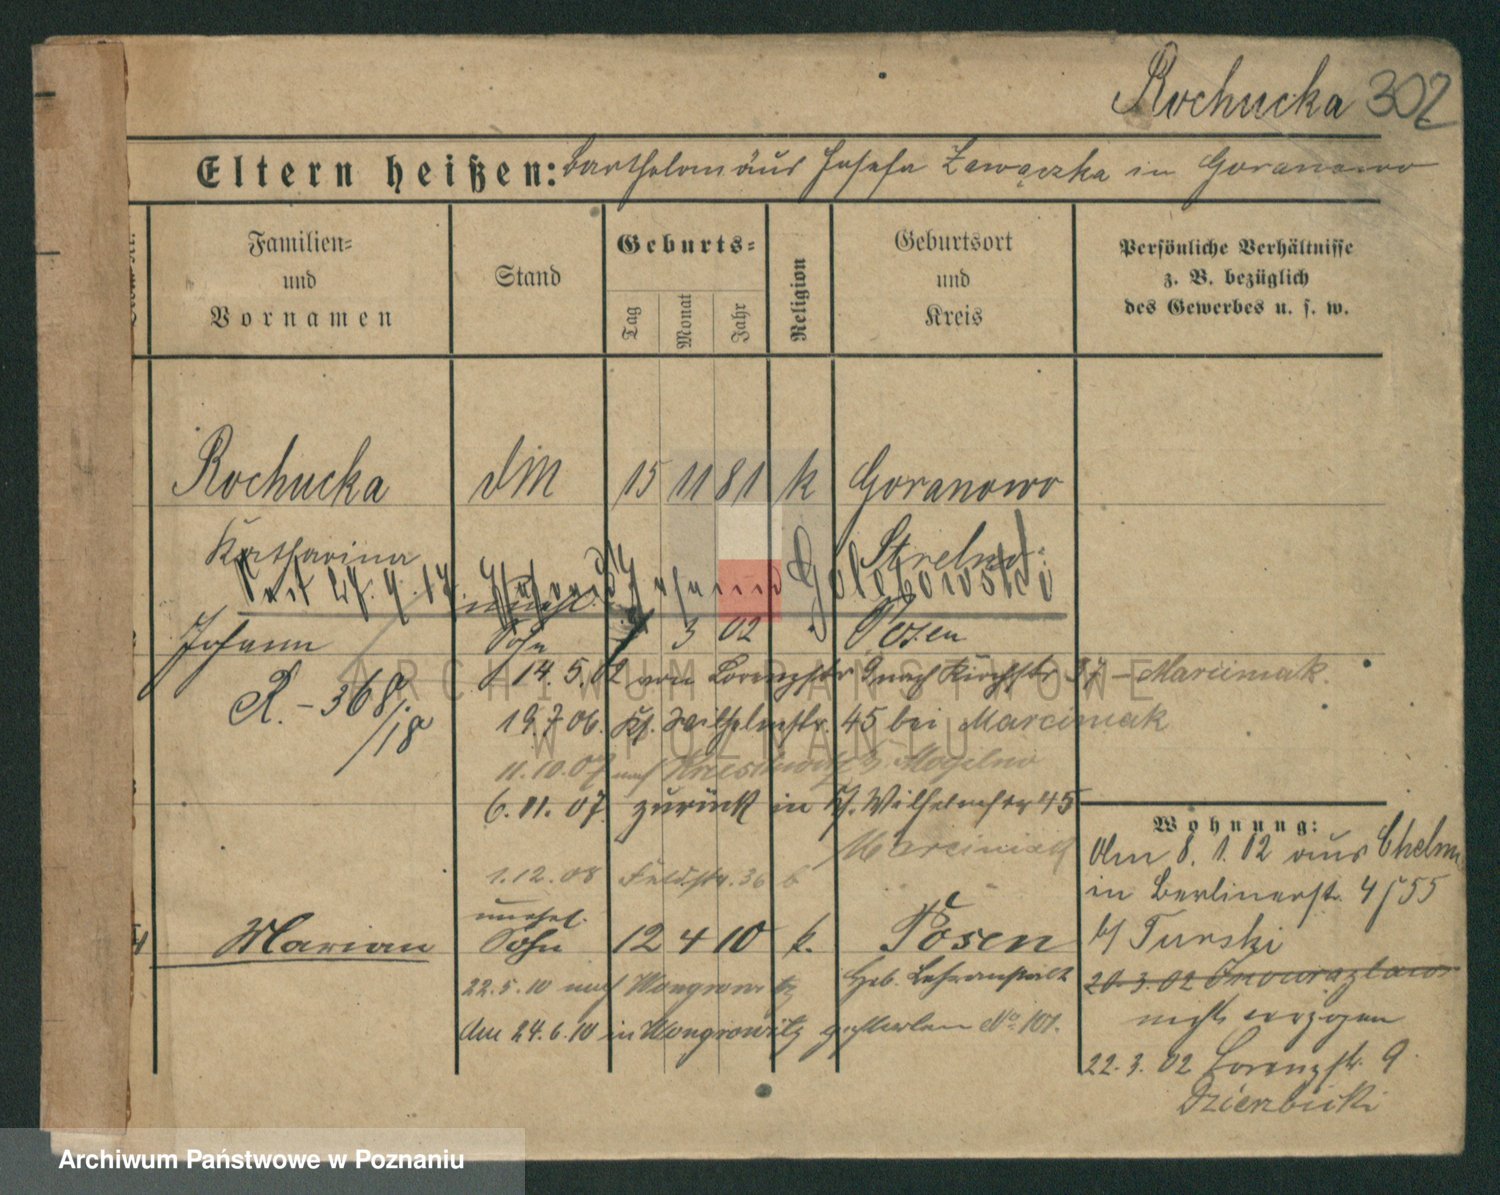 Rochucka 302
Eltern heißen: Bartholomäus Josefa Zawączka in Goranowo
Familien-
und
Vornamen
Stand
Geburts-
Tag
Monat
Jahr
Religion
Geburtsort
und
Kreis
Persönliche Verhältnisse
z. B. bezüglich
des Gewerbes u. s. w.
Rochucka
Katharina
15 11 81 k Goranowo
Strelno
Seit 27. 4. 17.
Johann Sohn 3 02 Posen
R. - 368/18
14. 5. 02 von Lorenzstr 9 nach Kirchstr 37 - Marciniak.
19. 7 06. Kr. Wilhelmstr. 45 bei Marciniak
11. 10. 07 nach Mogilno
6. 11. 07. zurück in Kr. Wilhelmstr 45
Marciniak
1. 12. 08 Feldstr. 36
Marian
unehel.
Sohn 12 4 10 k. Posen
Heb. Lehranstalt
22. 5. 10 nach Wongrowitz
Am 24. 6. 10 in Wongrowitz gestorben No. 101.
Wohnung:
Am 8. 1. 02 aus Chelm
in Berlinerstr. 4/55
b/ Turski
20. 3. 02 Inowrazlaw
nicht verzogen
22. 3. 02 Lorenzstr. 9
Dzierzbicki
ARCHIWUM PAŃSTWOWE
W POZNANIU
Archiwum Państwowe w Poznaniu